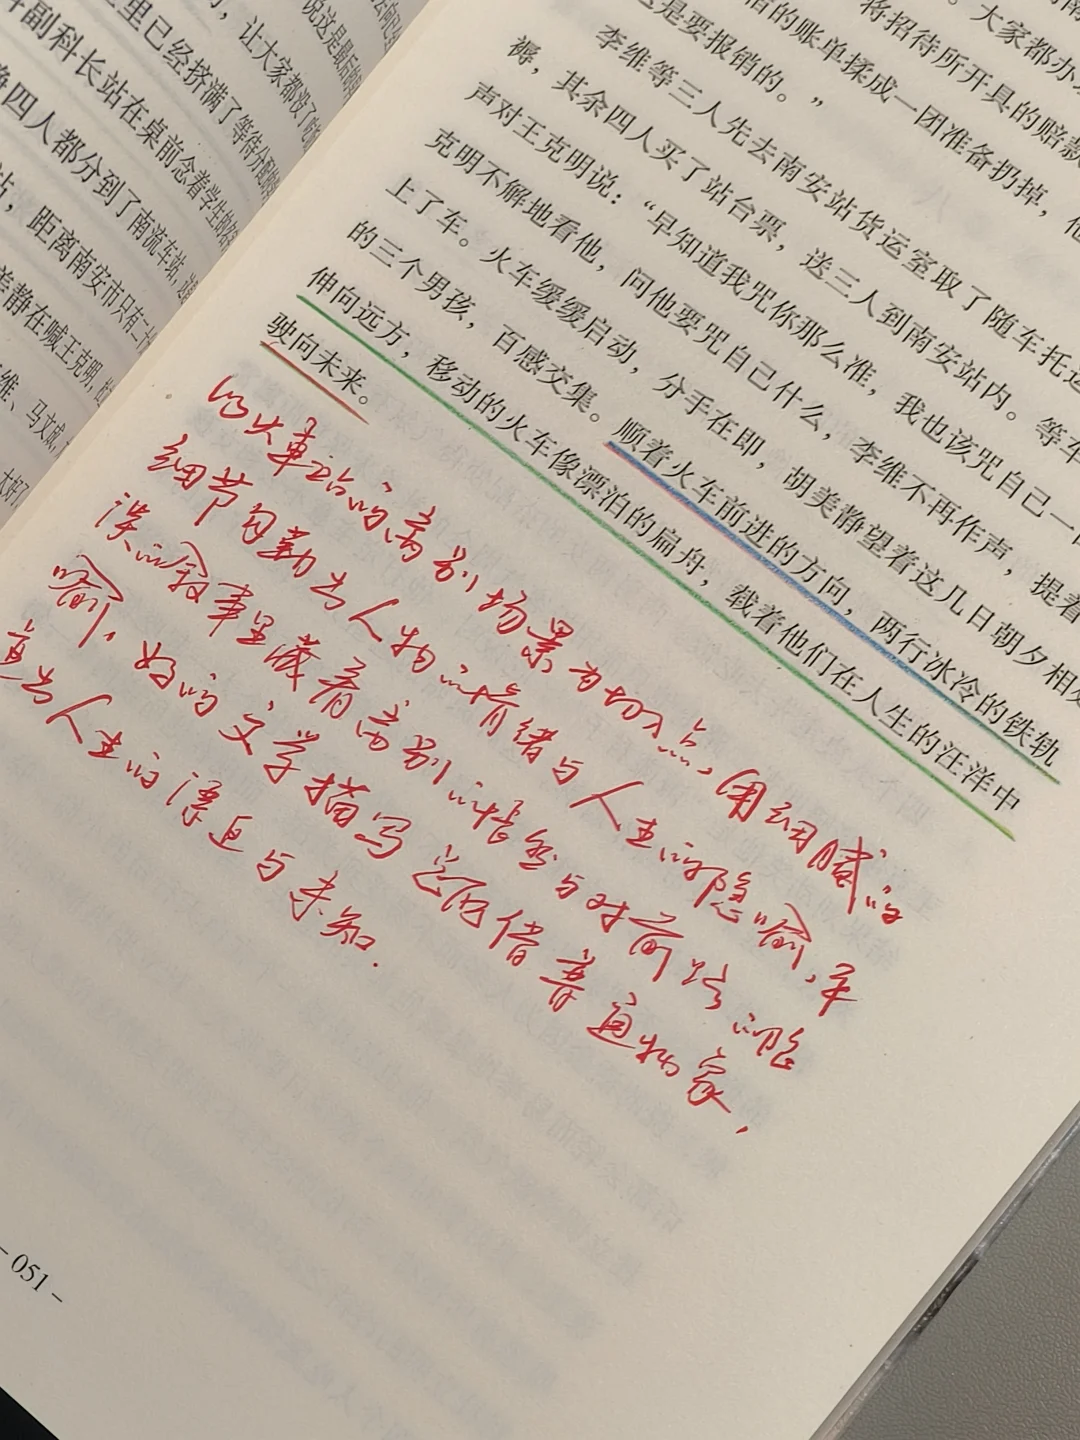 里已经挤满了等待分配
，让大家都没了
说这是最后的
副科长站在桌前念着学生的名
四人都分到了南流车站，
站，距离南安市只有二十
美静在喊王克明，
维、马文成，
太好了
。大家都办
将招待所开具的赔款
的账单揉成一团准备扔掉，他
是要报销的。”
李维等三人先去南安站货运室取了随车托运
褥，其余四人买了站台票，送三人到南安站内。等车
声对王克明说：“早知道我咒你那么准，我也该咒自己一
克明不解地看他，问他要咒自己什么，李维不再作声，提着
上了车。火车缓缓启动，分手在即，胡美静望着这几日朝夕相处
的三个男孩，百感交集。顺着火车前进的方向，两行冰冷的铁轨
伸向远方，移动的火车像漂泊的扁舟，载着他们在人生的汪洋中
驶向未来。
以火车站的离别场景为切入点，用细腻的
细节勾勒出人物的情绪与人生的隐喻，平
淡的叙事里藏着离别的怅然与对前路的隐
喻。好的文学描写总能借普通物象，
道出人生的漂泊与未知.
– 051 –